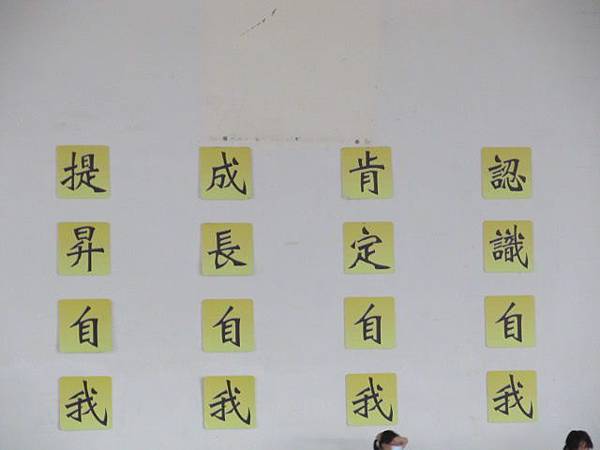 認識自我
肯定自我
成長自我
提昇自我